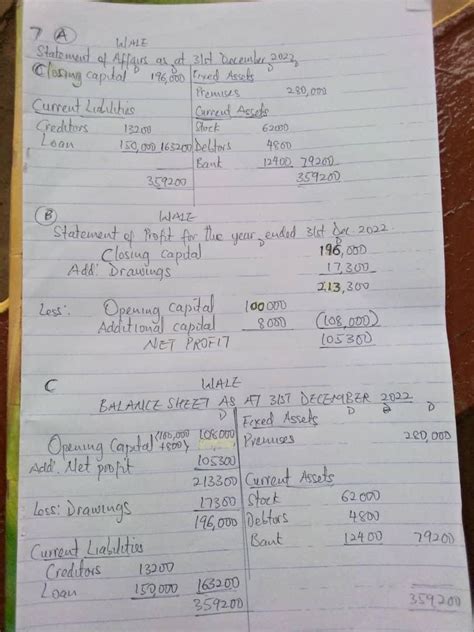 7 (A) WALE
Statement of Affairs as at 31st December 2022
D D D
Closing capital 196,000 Fixed Assets
Premises 280,000
Current Liabilities Current Assets
Creditors 13200 Stock 62000
Loan 150,000 163200 Debtors 4800
Bank 12400 79200
359200 359200
(B) WALE
Statement of Profit for the year ended 31st Dec 2022.
D D
Closing capital 196,000
Add: Drawings 17,300
213,300
Less: Opening capital 100000
Additional capital 8000 (108,000)
NET PROFIT 105300
C WALE
BALANCE SHEET AS AT 31ST DECEMBER 2022
D Fixed Assets D D D
Opening Capital (100,000 +8000) 108000 Premises 280,000
Add: Net profit 105300
213300 Current Assets
Less: Drawings 17300 Stock 62000
196,000 Debtors 4800
Current Liabilities Bank 12400 79200
Creditors 13200
Loan 150,000 163200
359200 359200